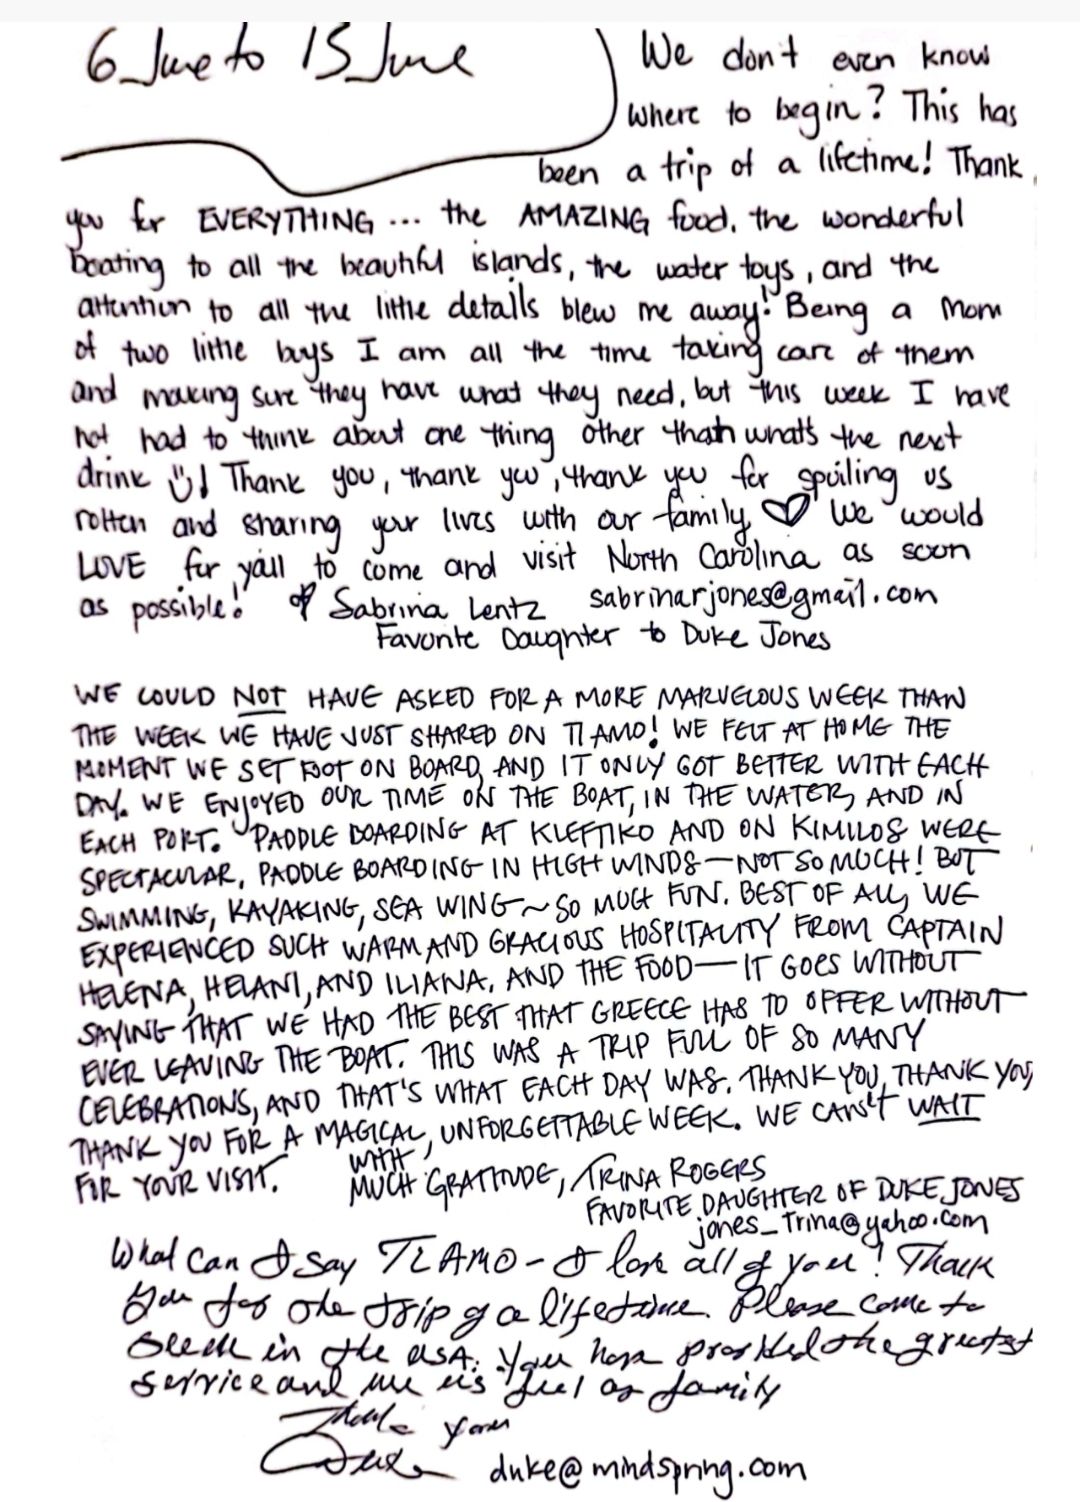 6 June to 15 June
We don't even know
where to begin? This has
been a trip of a lifetime! Thank
you for EVERYTHING ... the AMAZING food, the wonderful
boating to all the beautiful islands, the water toys, and the
attention to all the little details blew me away! Being a Mom
of two little boys I am all the time taking care of them
and making sure they have what they need, but this week I have
not had to think about one thing other than what's the next
drink ! Thank you, thank you, thank you for spoiling us
rotten and sharing your lives with our family ♡ We would
LOVE for y'all to come and visit North Carolina as soon
as possible! Sabrina Lentz sabrinarjones@gmail.com
Favorite Daughter to Duke Jones
WE COULD NOT HAVE ASKED FOR A MORE MARVELOUS WEEK THAN
THE WEEK WE HAVE JUST SHARED ON TI AMO! WE FELT AT HOME THE
MOMENT WE SET FOOT ON BOARD, AND IT ONLY GOT BETTER WITH EACH
DAY. WE ENJOYED OUR TIME ON THE BOAT, IN THE WATER, AND IN
EACH PORT. PADDLE BOARDING AT KLEFTIKO AND ON KIMILOS WERE
SPECTACULAR, PADDLE BOARDING IN HIGH WINDS — NOT SO MUCH! BUT
SWIMMING, KAYAKING, SEA WING ~ SO MUCH FUN. BEST OF ALL, WE
EXPERIENCED SUCH WARM AND GRACIOUS HOSPITALITY FROM CAPTAIN
HELENA, HELANI, AND ILIANA. AND THE FOOD — IT GOES WITHOUT
SAYING THAT WE HAD THE BEST THAT GREECE HAS TO OFFER WITHOUT
EVER LEAVING THE BOAT. THIS WAS A TRIP FULL OF SO MANY
CELEBRATIONS, AND THAT'S WHAT EACH DAY WAS. THANK YOU, THANK YOU,
THANK YOU FOR A MAGICAL, UNFORGETTABLE WEEK. WE CAN'T WAIT
FOR YOUR VISIT. WITH
MUCH GRATITUDE, TRINA ROGERS
FAVORITE DAUGHTER OF DUKE JONES
jones_trina@yahoo.com
What can I say TI AMO - I love all of you! Thank
you for the trip of a lifetime. Please come to
see us in the USA. You have provided the greatest
service and we us feel as family
Thank you
Duke duke@mindspring.com